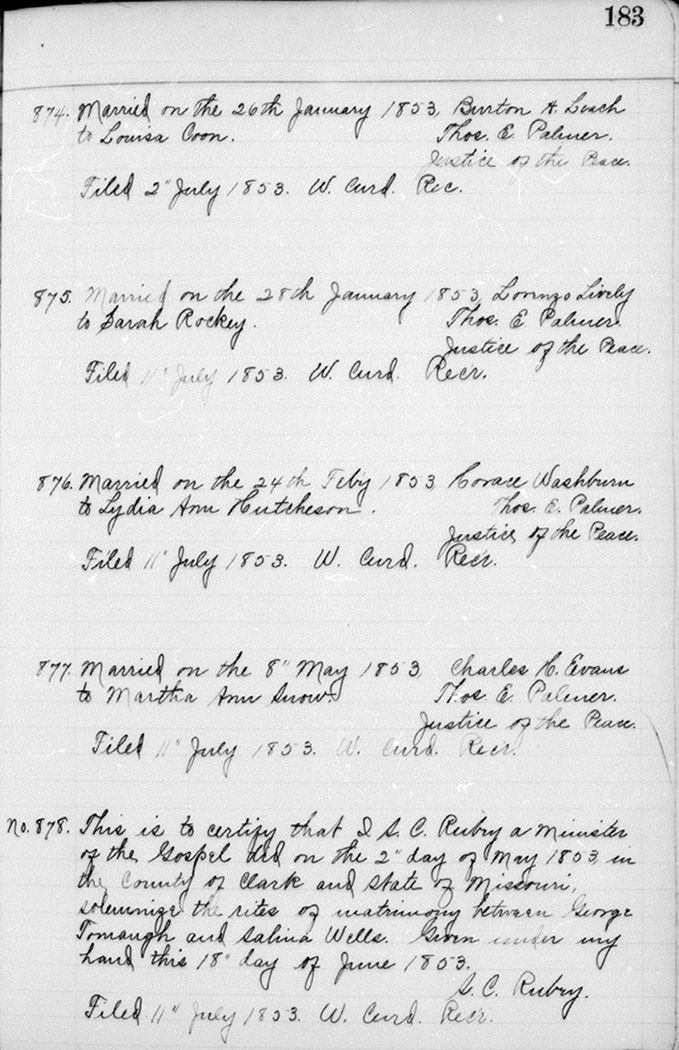 183
874. Married on the 26th January 1853, Burton A. Leach
to Louisa Coon. Thos. E. Palmer.
Justice of the Peace.
Filed 2" July 1853. W. Curd. Rec.
875. Married on the 28th January 1853, Lorenzo Lively
to Sarah Rockey. Thos. E. Palmer.
Justice of the Peace.
Filed 11" July 1853. W. Curd. Recr.
876. Married on the 24th Feb'y 1853 Horace Washburn
to Lydia Ann Hutcheson. Thos. E. Palmer.
Justice of the Peace.
Filed 11" July 1853. W. Curd. Recr.
877. Married on the 8" May 1853, Charles H. Evans
to Martha Ann Snow. Thos. E. Palmer.
Justice of the Peace.
Filed 11" July 1853. W. Curd. Recr.
No. 878. This is to certify that I S. C. Rubry a Minister
of the Gospel did on the 2" day of May 1853, in
the County of Clark and State of Missouri,
solemnize the rites of matrimony between George
Tomaugh and Salina Wells. Given under my
hand this 18" day of June 1853.
S. C. Rubry.
Filed 11" July 1853. W. Curd. Recr.